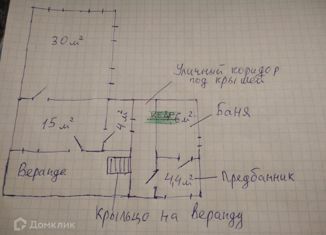 30 м²
Уличный коридор
под крышей
Баня
15 м²
4 м²
6 м²
Веранда
4,4 м²
Предбанник
Крыльцо на Веранду
Домклик